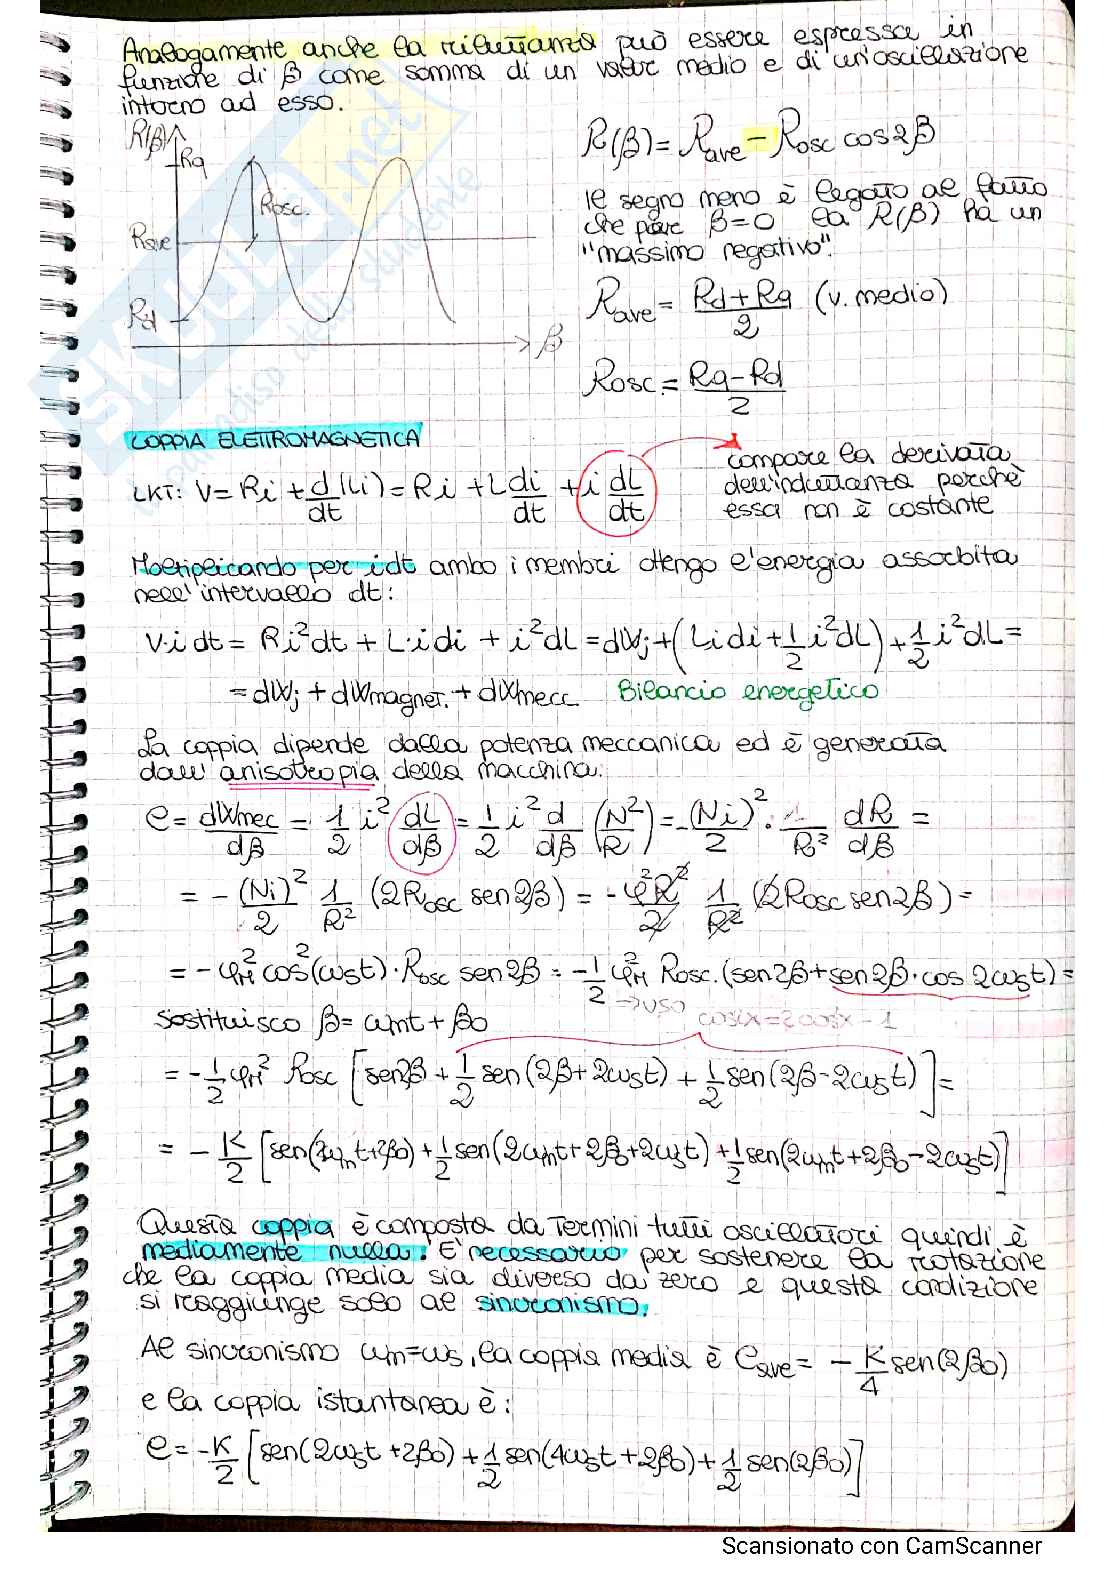 Analogamente anche la riluttanza può essere espressa in
funzione di β come somma di un valor medio e di un'oscillazione
intorno ad esso.
R(β)
Rq
Rosc.
Rave
Rd
β
R(β) = Rave - Rosc cos2β
Il segno meno è legato al fatto
che per β=0 la R(β) ha un
"massimo negativo".
Rave = (Rd+Rq)/2 (v. medio)
Rosc. = (Rq-Rd)/2
COPPIA ELETTROMAGNETICA
LKT: V = Ri + d(Li)/dt = Ri + L di/dt + i dL/dt
compare la derivata
dell'induttanza perché
essa non è costante
Moltiplicando per idt ambo i membri ottengo l'energia assorbita
nell'intervallo dt:
V·i dt = Ri²dt + L·idi + i²dL = dWj + (Lidi + 1/2 i²dL) + 1/2 i²dL =
= dWj + dWmagnet. + dWmecc. Bilancio energetico
La coppia dipende dalla potenza meccanica ed è generata
dall'anisotropia della macchina:
C = dWmec/dβ = 1/2 i² dL/dβ = 1/2 i² d/dβ (N²/R) = -(Ni)²/2 · 1/R² dR/dβ =
= -(Ni)²/2 1/R² (2Rosc sen2β) = -φ²R²/2 1/R² (2Rosc sen2β) =
= -φM² cos²(ωst)·Rosc sen2β = -1/2 φM² Rosc.(sen2β + sen2β·cos2ωst) =
→ USO cos2x = 2cos²x - 1
Sostituisco β = ωmt + β0
= -1/2 φM² Rosc [sen2β + 1/2 sen(2β+2ωst) + 1/2 sen(2β-2ωst)] =
= -K/2 [sen(2ωmt+2β0) + 1/2 sen(2ωmt+2β0+2ωst) + 1/2 sen(2ωmt+2β0-2ωst)]
Questa coppia è composta da termini tutti oscillatori quindi è
mediamente nulla. E' necessario per sostenere la rotazione
che la coppia media sia diverso da zero e questa condizione
si raggiunge solo al sincronismo.
Al sincronismo ωm=ωs, la coppia media è Cave = -K/4 sen(2β0)
e la coppia istantanea è:
C = -K/2 [sen(2ωst+2β0) + 1/2 sen(4ωst+2β0) + 1/2 sen(2β0)]
SKUOLA.net
il paradiso dello studente
Scansionato con CamScanner